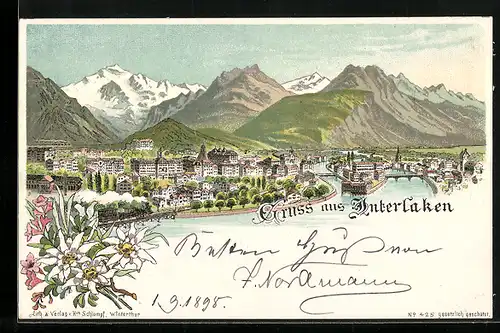 Gruss aus Interlaken
Besten Gruß von
F. Nordmann
1.9.1898.
Lith. & Verlag v. Hch Schlumpf, Winterthur
No 425 gesetzlich geschützt.